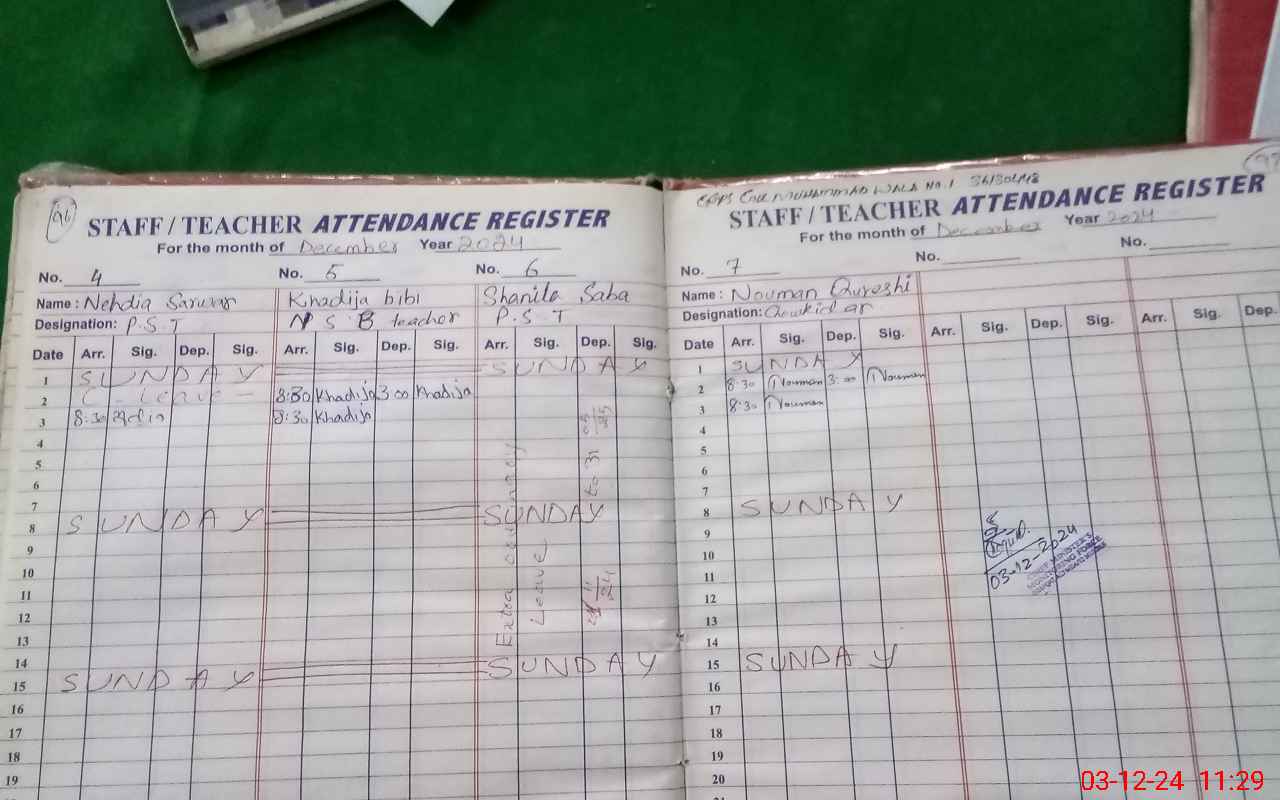 96
STAFF / TEACHER ATTENDANCE REGISTER
For the month of December Year 2024
No. 4 No. 5 No. 6
Name : Nehdia Sarwar Khadija bibi Shanila Saba
Designation: P.S.T N S B teacher P.S.T
Date Arr. Sig. Dep. Sig. Arr. Sig. Dep. Sig. Arr. Sig. Dep. Sig.
1 SUNDAY SUNDAY
2 C - Leave - 8:30 Khadija 3:00 Khadija
3 8:30 8:30 Khadija
4
5
6
7
8 SUNDAY SUNDAY
9
10
11
12
13
14
15 SUNDAY SUNDAY
16
17
18
19
Extra ordinary
Leave
to 31
No. 1 36130448
STAFF / TEACHER ATTENDANCE REGISTER
For the month of December Year 2024
No. 7 No. No.
Name : Nouman Qureshi
Designation: Chowkidar
Date Arr. Sig. Dep. Sig. Arr. Sig. Dep. Sig. Arr. Sig. Dep.
1 SUNDAY
2 8:30 Nouman 3:00 Nouman
3 8:30 Nouman
4
5
6
7
8 SUNDAY
9
10
11
12
13
14
15 SUNDAY
16
17
18
19
20
03-12-2024
CHIEF MINISTER'S
MONITORING FORCE
03-12-24 11:29